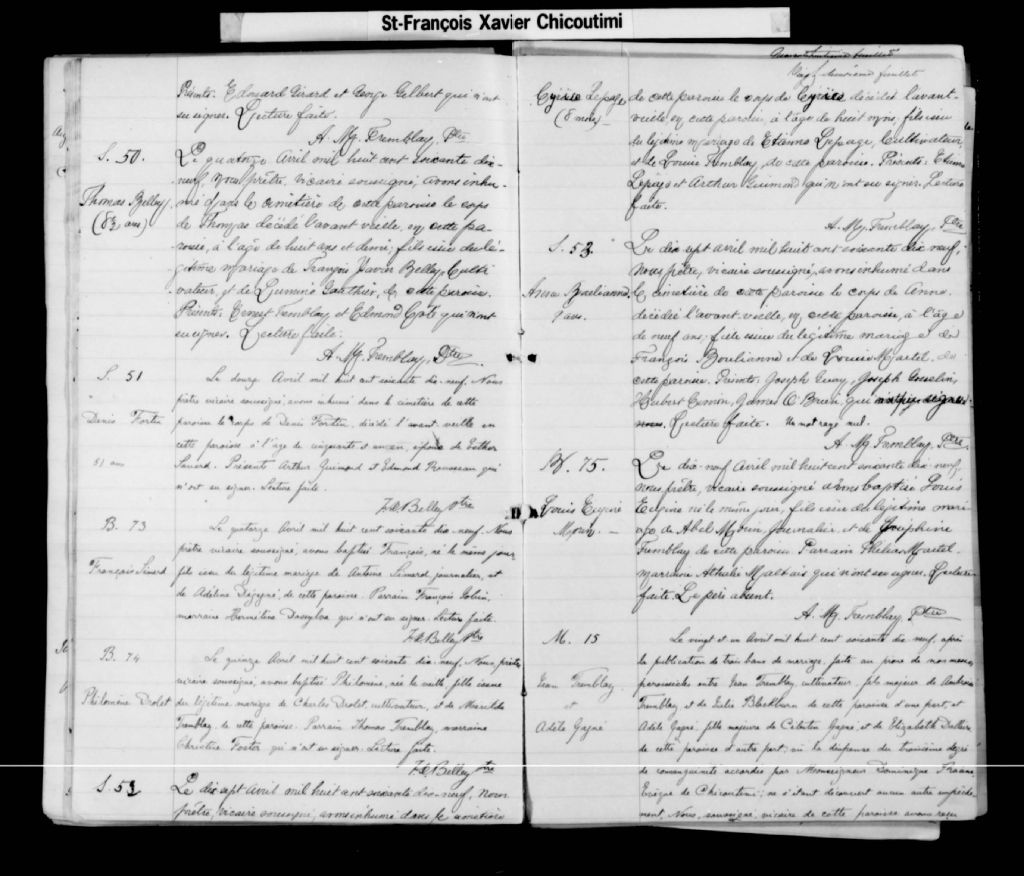 St-François Xavier Chicoutimi
Présents: Edouard Girard et George Gilbert qui n'ont
su signer. Lecture faite.
A. Mg. Tremblay, Ptre
S. 50.
Thomas Belley
(8½ ans)
Le quatorze Avril mil huit cent soixante dix-
neuf, nous prêtre, vicaire soussigné, avons inhu-
mé dans le cimetière de cette paroisse le corps
de Thomas décédé l'avant veille, en cette pa-
roisse, à l'âge de huit ans et demi, fils issu du lé-
gitime mariage de François Xavier Belley, Culti-
vateur, et de Gauthier, de cette paroisse.
Présents: Ernest Tremblay et Edmond Côté qui n'ont
su signer. Lecture faite.
A. Mg. Tremblay, Ptre
S. 51
Denis Fortin
51 ans
Le douze Avril mil huit cent soixante dix-neuf. Nous
prêtre vicaire soussigné, avons inhumé dans le cimetière de cette
paroisse le corps de Denis Fortin, décédé l'avant veille en
cette paroisse à l'âge de cinquante et un an, époux de Esther
Simard. Présents Arthur Guimond et Edmond Rousseau qui
n'ont su signer. Lecture faite.
Belley Ptre
B. 73
François Simard
Le quatorze Avril mil huit cent soixante dix-neuf. Nous
prêtre vicaire soussigné, avons baptisé François, né le même jour,
fils issu du légitime mariage de Antoine Simard, journalier, et
de Adéline de cette paroisse. Parrain François
marraine Herméline Dasylva qui n'ont su signer. Lecture faite.
Belley Ptre
B. 74
Philomène Drolet
Le quinze Avril mil huit cent soixante dix-neuf. Nous prêtre
vicaire soussigné, avons baptisé Philomène, née la veille, fille issue
du légitime mariage de Charles Drolet cultivateur, et de Mathilde
Tremblay, de cette paroisse. Parrain Thomas Tremblay, marraine
Christine Fortin qui n'ont su signer. Lecture faite.
Belley Ptre
S. 52
Le dix sept Avril mil huit cent soixante dix-neuf, nous
prêtre, vicaire soussigné, avons inhumé dans le cimetière
feuillet
Lepage
(8 mois)
de cette paroisse le corps de décédé l'avant-
veille en cette paroisse, à l'âge de huit mois, fils issu
du légitime mariage de Etienne Lepage, Cultivateur,
et de Louise Tremblay, de cette paroisse. Présents: Etienne
Lepage et Arthur Guimond qui n'ont su signer. Lecture
faite.
A. Mg. Tremblay, Ptre
S. 53.
Anna Boulianne
9 ans.
Le dix sept avril mil huit cent soixante dix neuf,
nous prêtre, vicaire soussigné, avons inhumé dans
le cimetière de cette paroisse le corps de Anna
décédée l'avant-veille, en cette paroisse, à l'âge
de neuf ans, fille issue du légitime mariage de
François Boulianne et de Louise Martel, de
cette paroisse. Présents, Joseph Joseph Gosselin,
Hubert Simon, James O'Brien qui
nous. Lecture faite. Un mot rayé nul.
A. Mg Tremblay, Ptre
B. 75.
Louis Eugène
Morin
Le dix-neuf Avril mil huit cent soixante dix neuf,
nous prêtre, vicaire soussigné avons baptisé Louis
Eugène né le même jour, fils issu du légitime mari-
age de Abel Morin, Journalier, et de Joséphine
Tremblay de cette paroisse. Parrain Martel
marraine Athalie Maltais qui n'ont su signer. Lecture
faite. Le père absent.
A. Mg. Tremblay, Ptre
M. 15
Jean Tremblay
et
Adèle Gagné
Le vingt et un Avril mil huit cent soixante dix neuf, après
la publication de trois bans de mariage, faite au prône de nos messes
paroissiales entre Jean Tremblay cultivateur, fils majeur de Ambroise
Tremblay et de Julie Blackburn de cette paroisse d'une part, et
Adèle Gagné, fille majeure de Célestin Gagné, et de Elizabeth
de cette paroisse d'autre part; vu la dispense du troisième degré
de consanguinité accordée par Monseigneur Dominique Racine
Evêque de Chicoutimi; ne s'étant découvert aucun autre empêche-
ment, Nous, soussigné, vicaire de cette paroisse avons reçu